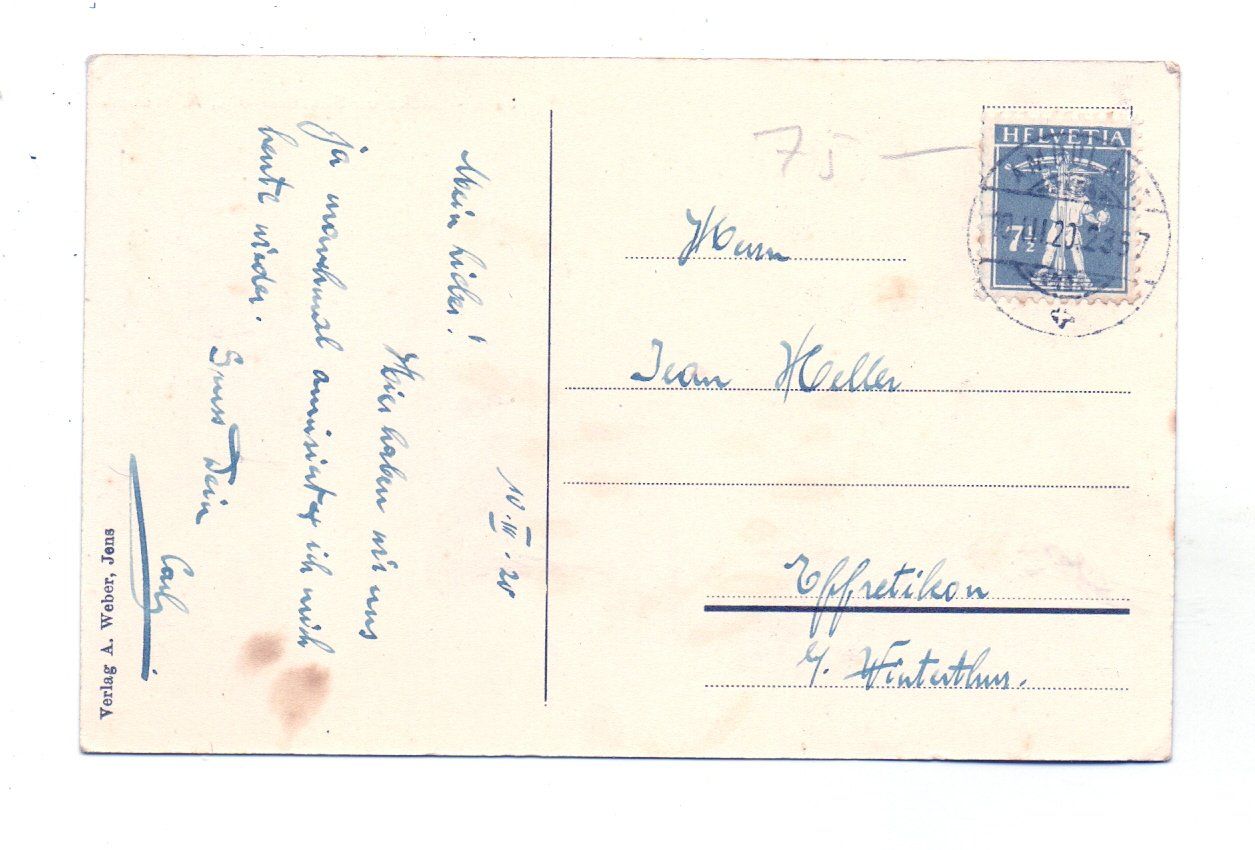 10.III.20
Mein Lieber!
Hier haben wir uns
ja manchmal amüsiert ich mich
heute wieder.
Gruss Dein
Carl
Verlag A. Weber, Jens
75
HELVETIA
7½
10.III.20.
Herrn
Jean Heller
Effretikon
b/. Winterthur.